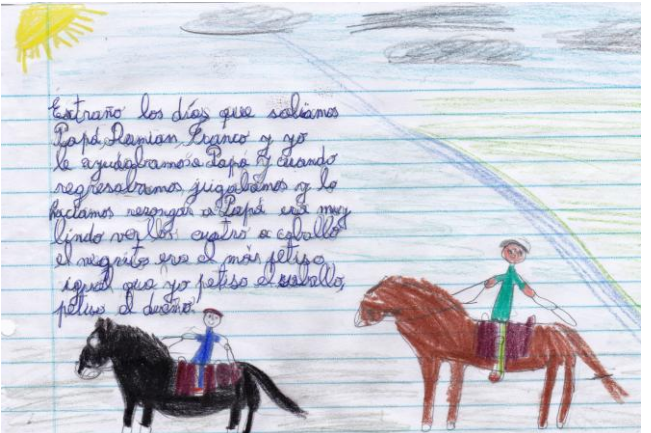 Extraño los días que saliamos
Papá, Damian, Franco y yo
le ayudabamos a Papa y cuando
regresabamos jugabamos y lo
haciamos rezongar a Papá era muy
lindo ver los cuatro a caballo
el negrito era el más petiso
igual que yo petiso el caballo,
petiso el dueño.